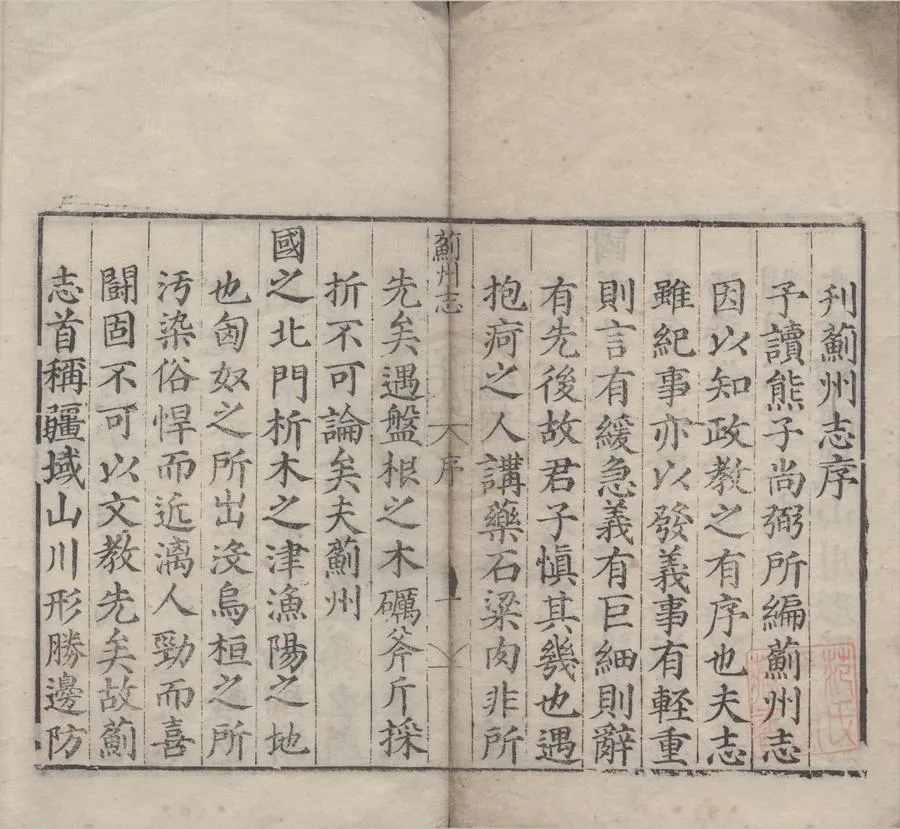 刊薊州志序
予讀熊子尚弼所編薊州志
因以知政教之有序也夫志
雖紀事亦以發義事有輕重
則言有緩急義有巨細則辭
有先後故君子慎其幾也遇
抱疴之人講藥石梁肉非所
薊州志
序
一
先矣遇盤根之木礪斧斤採
折不可論矣夫薊州
國之北門析木之津漁陽之地
也匈奴之所出沒烏桓之所
汚染俗悍而近漓人勁而喜
鬪固不可以文教先矣故薊
志首稱疆域山川形勝邊防